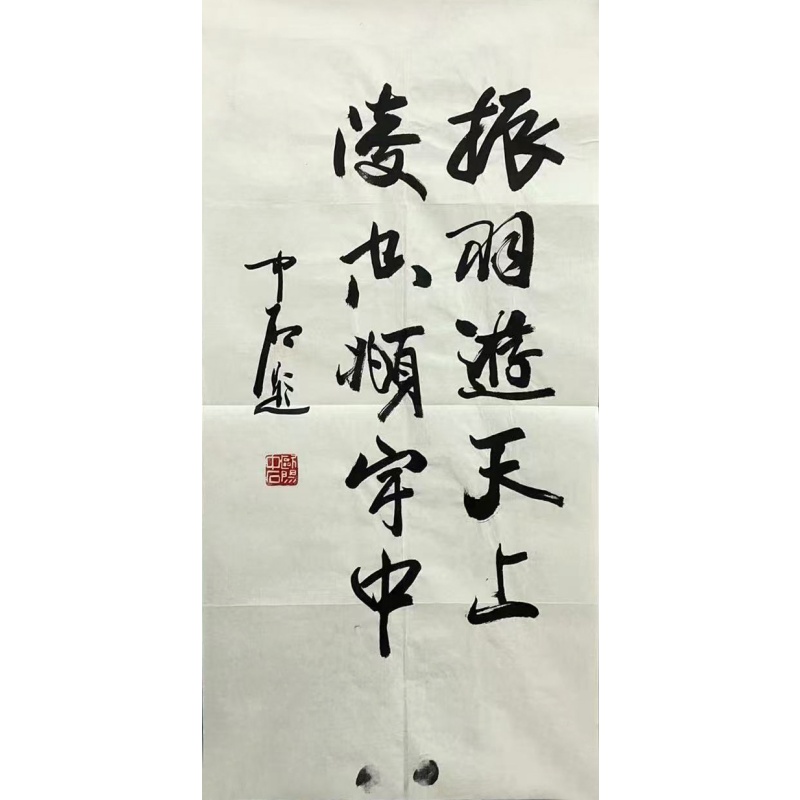 振羽遊天上
凌空頫宇中
中石題
歐陽中石